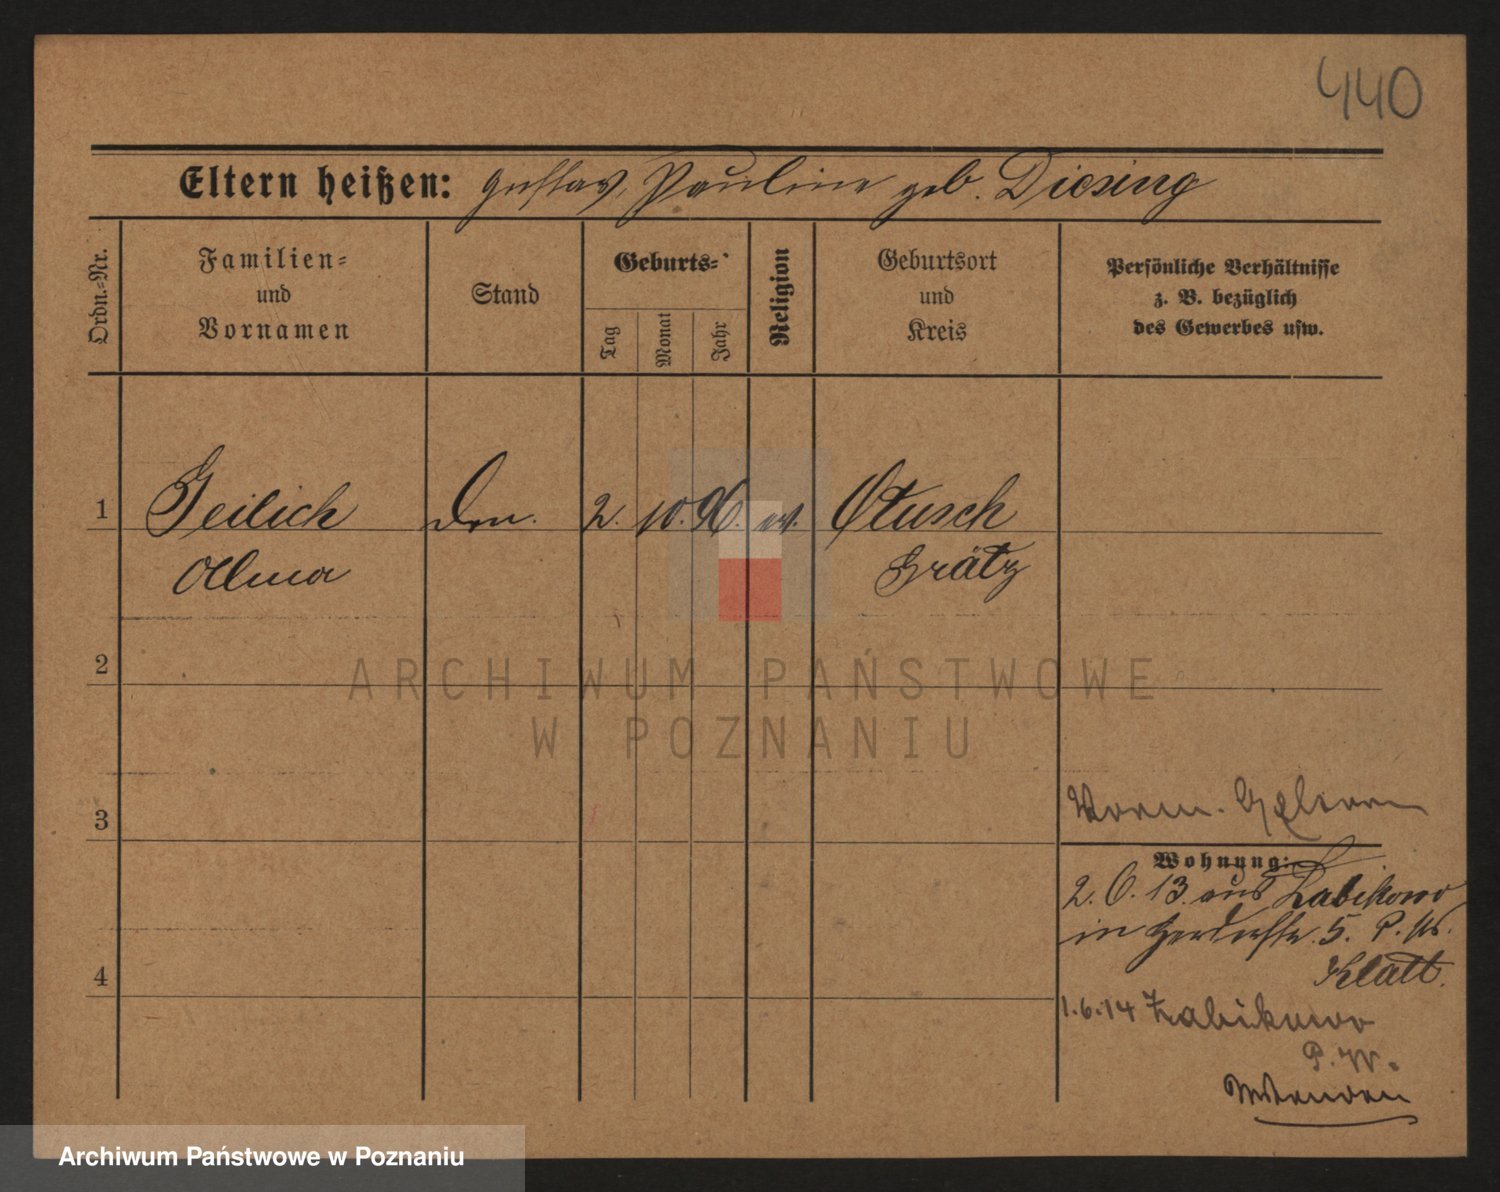 440
Eltern heißen: Gustav, Pauline geb. Diesing
Ordn.-Nr.
Familien- und Vornamen
Stand
Geburts-
Tag
Monat
Jahr
Religion
Geburtsort und Kreis
Persönliche Verhältnisse z. B. bezüglich des Gewerbes usw.
1 Geilich 2. 10. 96. ev. Otusch
Grätz
2
3
4
Vorm.
Wohnung:
2. 6. 13. aus Zabikowo
in 5. P. Us.
Klatt.
1.6.14 Zabikowo
P. W.
ARCHIWUM PAŃSTWOWE
W POZNANIU
Archiwum Państwowe w Poznaniu